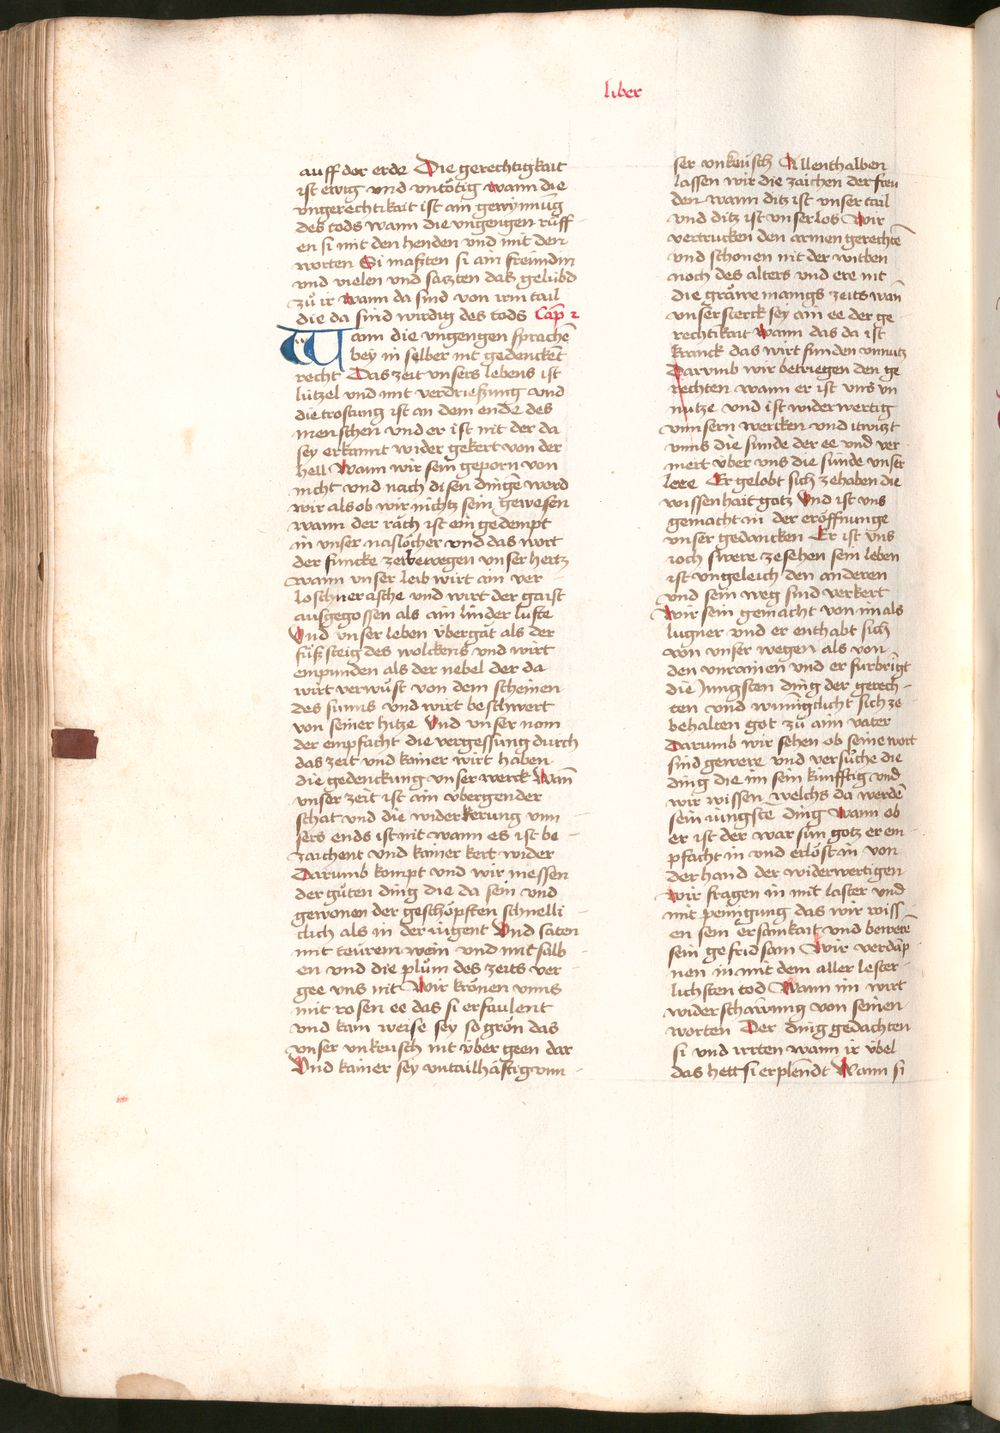 liber
auff der erde Die gerechtigkait
ist ewig vnd vntötig wann die
vngerechtikait ist ain gewynnūg
des tods wann die vngengen rüff
en si mit den henden vnd mit den
worten Si maßten si ain freindin
vnd vielen vnd saczten daß gelübd
zů ir wann da sind von irm tail
die da sind wirdig des tods Cap̄ 2
Wann die vngengen sprachē
bey in selber nit gedenckēt
recht Das zeit vnsers lebens ist
lützel vnd mit verdrießung vnd
die trostung ist an dem ende des
menschen vnd er ist nit der da
sey erkannt wider gekert von der
hell Wann wir sein geporn von
nicht vnd nach disen dingē werd
wir als ob wir nichtz sein gewesen
wann der räch ist ein gedempt
in vnser naslöcher vnd das wort
der funcke zebewegen vnser hertz
Wann vnser leib wirt ain ver
loschner asche vnd wirt der gaist
außgegossen als ain linder lufte
Vnd vnser leben v̈bergät als der
fůß steig des wolckens vnd wirt
empunden als der nebel der da
wirt verwůst von dem scheinen
des sunns vnd wirt beschwert
von seiner hitze Vnd vnser nam
der empfacht die vergessung durch
das zeit vnd kainer wirt haben
die gedenckung vnser werck Wan̄
vnser zeit ist ain v̈bergender
schat vnd die widerkerung vnn
sers ends ist nit wann es ist be
zaichent vnd kainer kert wider
Darumb kompt vnd wir niessen
der gůten ding die da sein vnd
gewonen der geschöpften schnelli
clich als in der iugent Vnd saten
mit teurem wein vnd mit salb
en vnd die plům des zeits ver
gee vns nit Wir krönen vnns
mit rosen ee das si erfaulent
vnd kain weise sey so grön das
vnser vnkeusch nit v̈ber geen dar
Vnd kainer sey vntailhäftig vnn
ser vnkeusch Allenthalben
lassen wir die zaichen der freu
den wann ditz ist vnser tail
vnd ditz ist vnser los Wir
vertrucken den armen gerechtē
vnd schonen nit der witben
noch des alters vnd ere nit
die gräwe manigs zeits wan̄
vnser sterck sey ain ee der ge
rechtikait Wann das da ist
kranck das wirt funden vnnutz
Darumb wir betriegen den ge
rechten wann er ist vns vn
nutze vnd ist widerwertig
vnnsern wercken vnd itwizt
vnns die sunde der ee vnd ver
mert v̈ber vns die sünde vnser
lere Er gelobt sich zehaben die
wissenhait gotz Vnd ist vns
gemacht in der eröffnunge
vnser gedancken Er ist vns
ioch swere zesehen sein leben
ist vngeleich den anderen
vnd sein weg sind verkert
Wir sein gemacht von im als
lugner vnd er enthabt sich
von vnser wegen als von
den vnrainen vnd er furbrigt
die Jungsten ding der gerech
ten vnd wunnigclicht sich ze
behalten got zů aim vater
Darumb wir sehen ob seine wort
sind gewere vnd versůche die
ding die im sein künfftig vnd
wir wissen welchs da werdē
sein iungstē ding Wann ob
er ist der war sun gotz er em
pfacht in vnd erlöst in von
der hand der widerwertigen
Wir fragen in mit laster vnd
mit peinigung das wir wiss
en sein ersamkait vnd bewerē
sein gefridsam Wir verdāp
nen in mit dem aller lester
lichsten tod Wann im wirt
widerschawung von seinen
worten Der ding gedachten
si vnd irrten wann ir v̈bel
das hett si erplendt Wann si